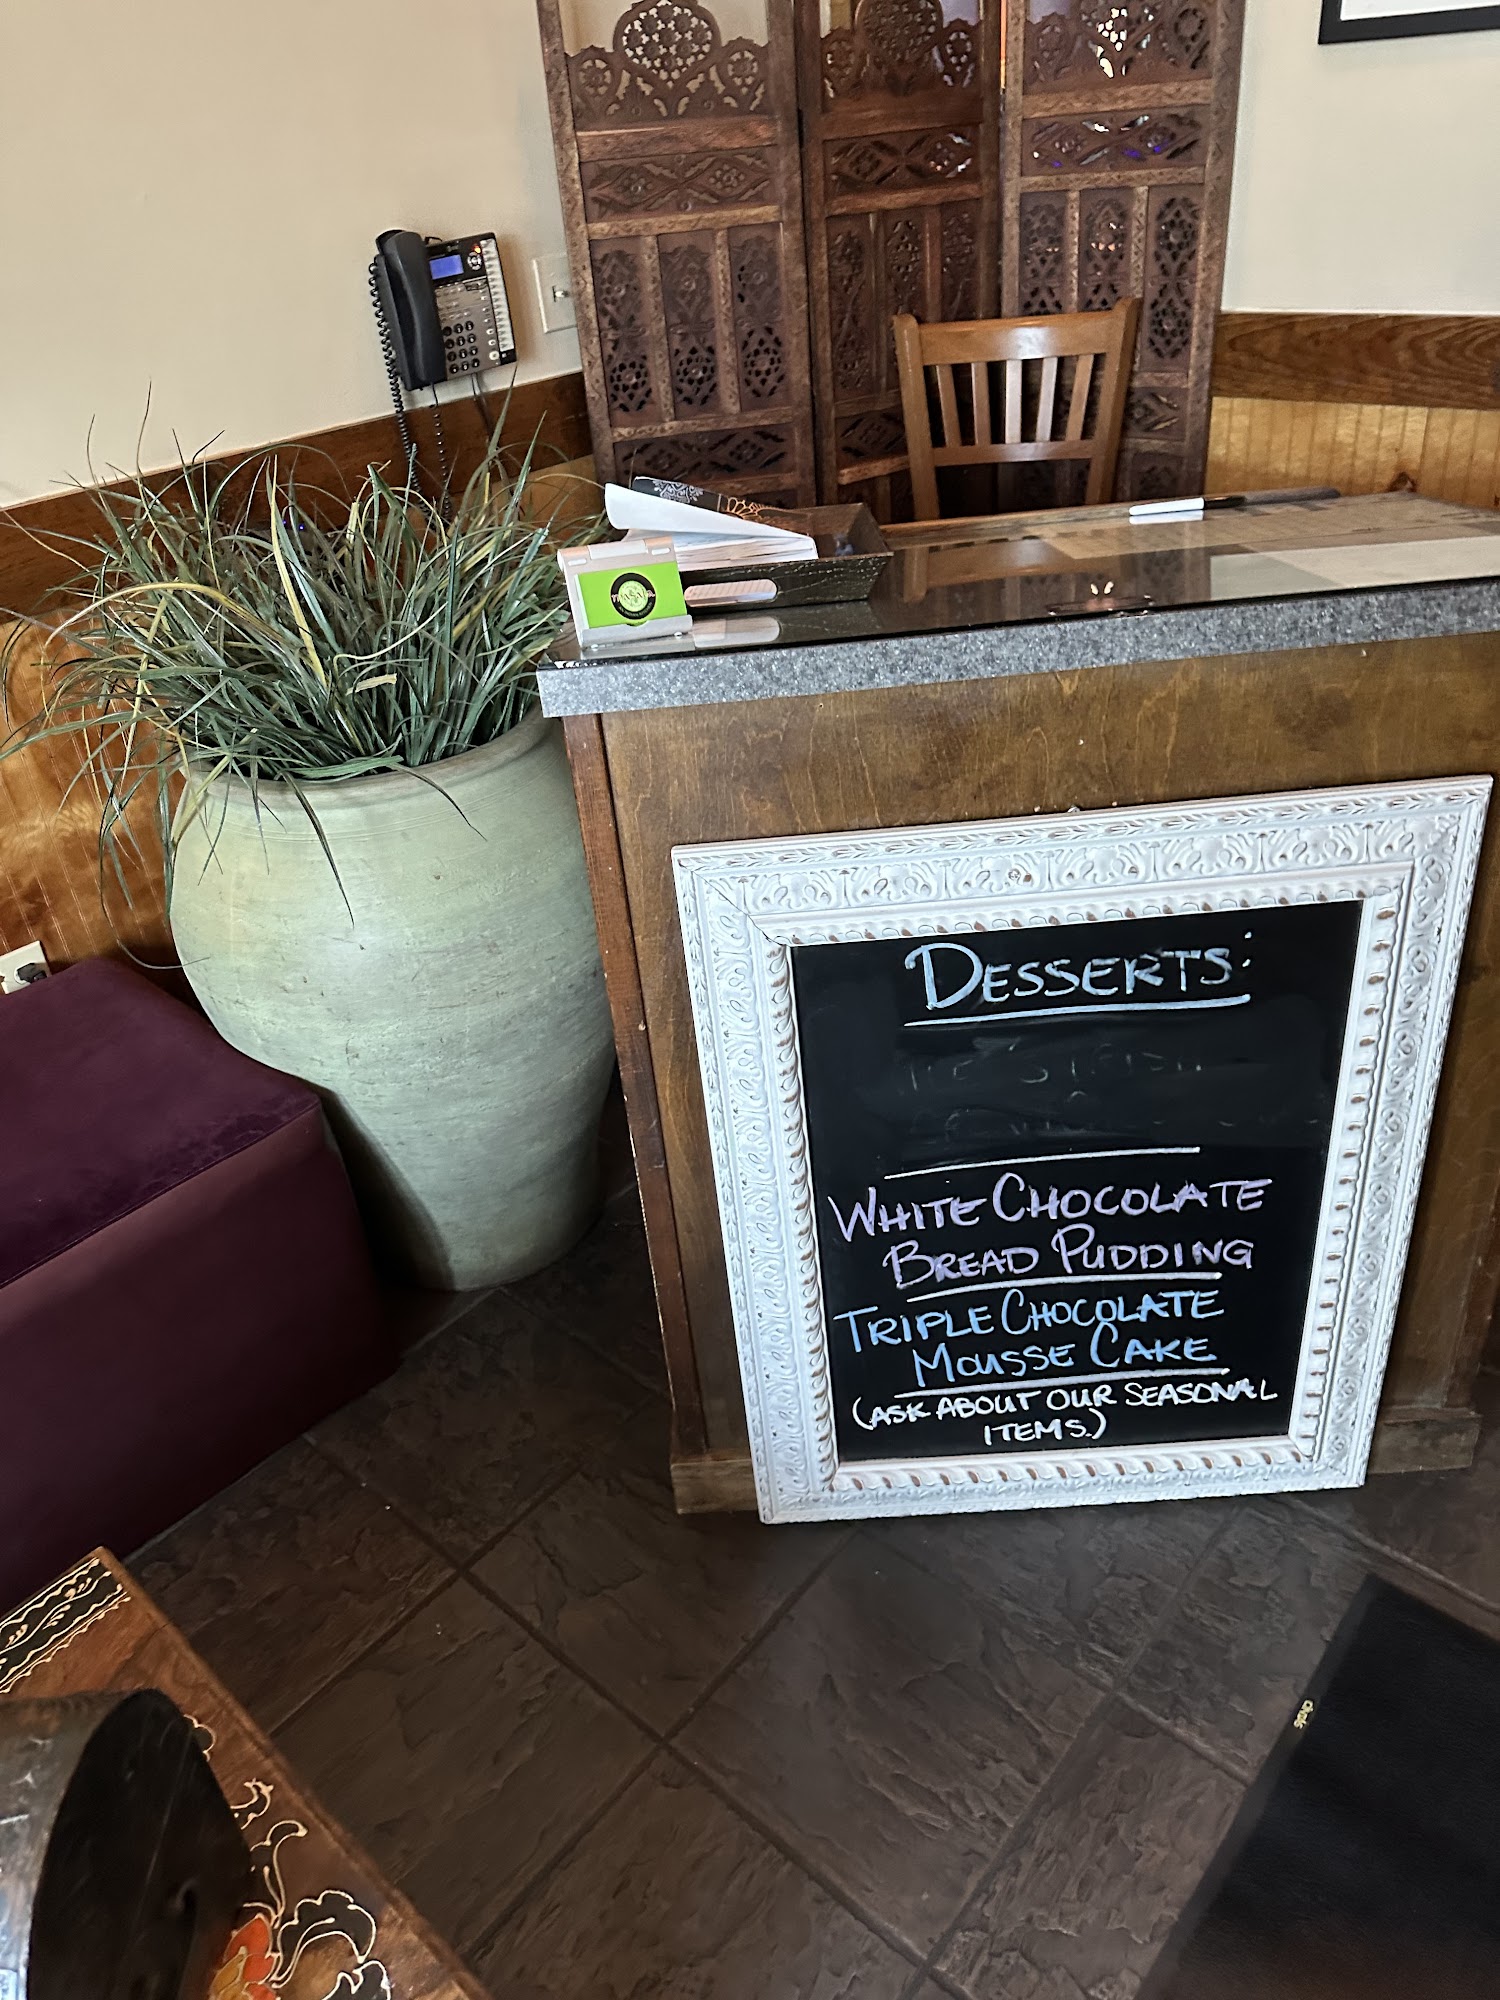 DESSERTS:
WHITE CHOCOLATE
BREAD PUDDING
TRIPLE CHOCOLATE
MOUSSE CAKE
(ASK ABOUT OUR SEASONAL
ITEMS.)